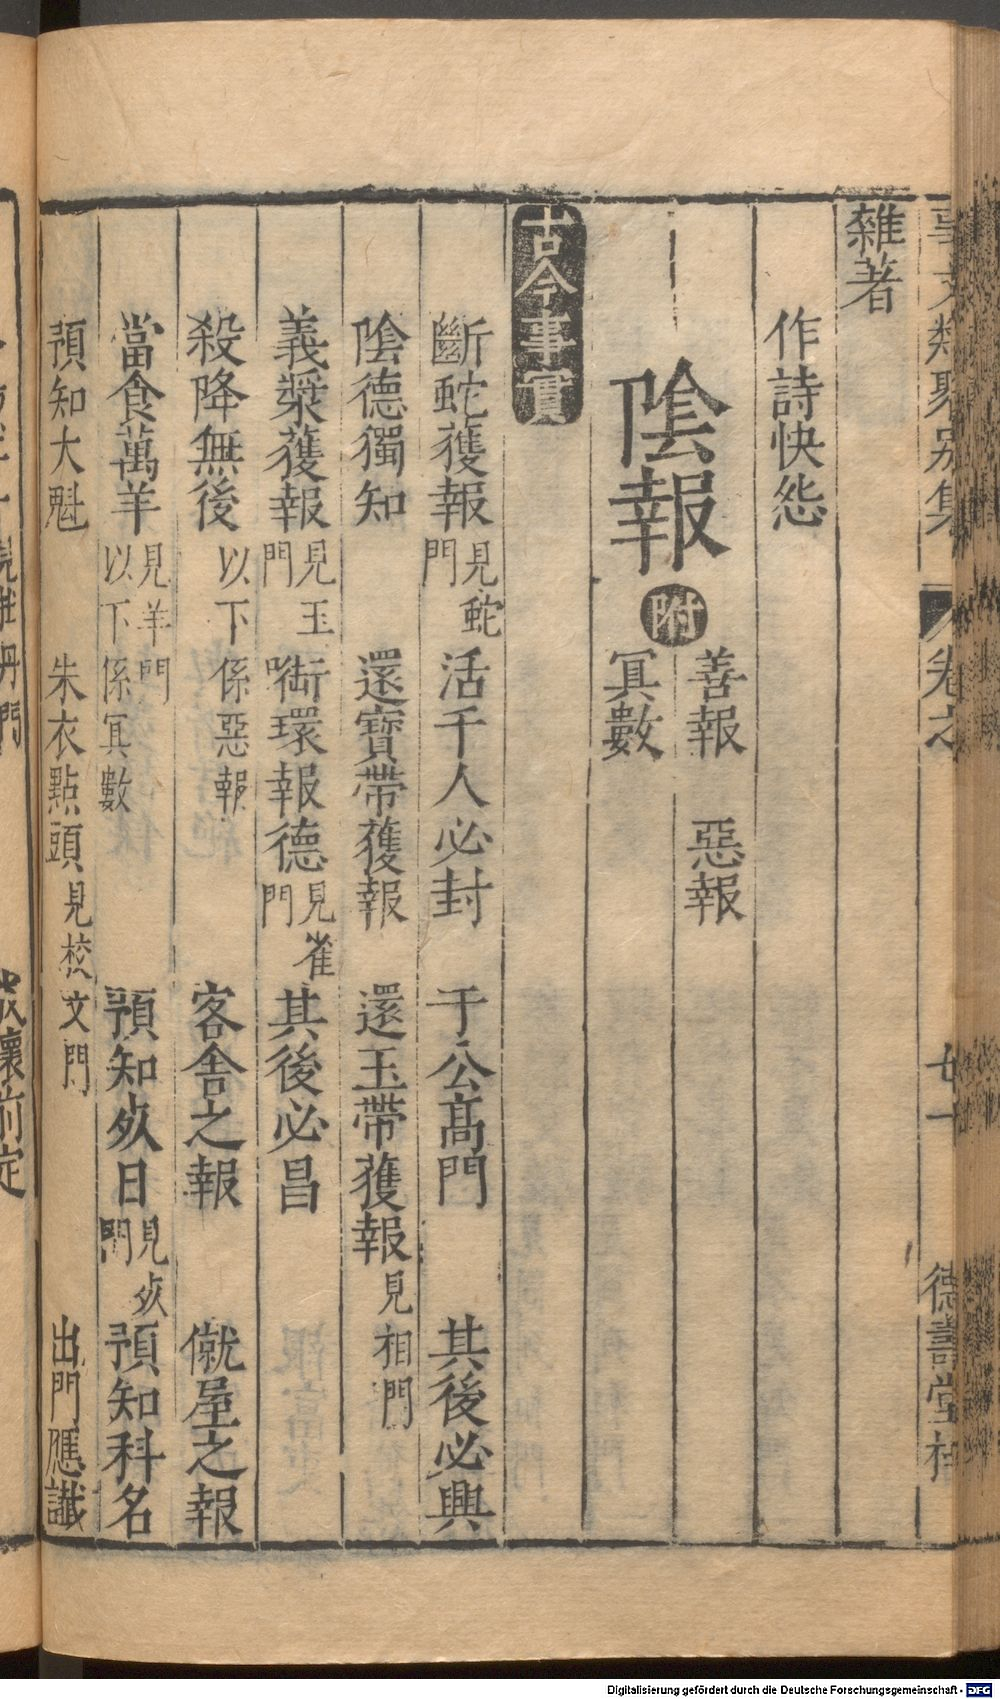 雜著
作詩快怨
陰報 附 善報 惡報 冥數
古今事實
斷蛇獲報 見蛇門 活千人必封 于公高門 其後必興
陰德獨知 還寶帶獲報 還玉帶獲報 見相門
義漿獲報 見玉門 啣環報德 見雀門 其後必昌
殺降無後 以下係惡報 客舍之報 僦屋之報
當食萬羊 見羊門 以下係冥數 預知死日 見死門 預知科名
預知大魁 朱衣點頭 見校文門 出門應讖
Digitalisierung gefördert durch die Deutsche Forschungsgemeinschaft - DFG